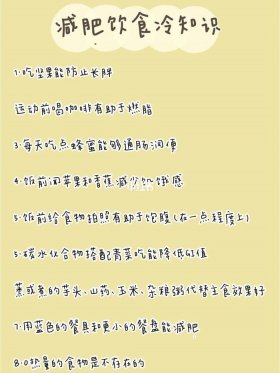 减肥饮食冷知识
1·吃坚果能防止长胖
运动前喝咖啡有助于燃脂
3·每天吃点蜂蜜能够通肠润便
4·饭前闻苹果和香蕉减少饥饿感
5·饭前给食物拍照有助于饱腹(在一点程度上)
5·碳水化合物搭配青菜吃能降低GI值
蒸或煮的芋头、山药、玉米、杂粮粥代替主食效果好
7·用蓝色的餐具和更小的餐盘能减肥
8·0热量的食物是不存在的